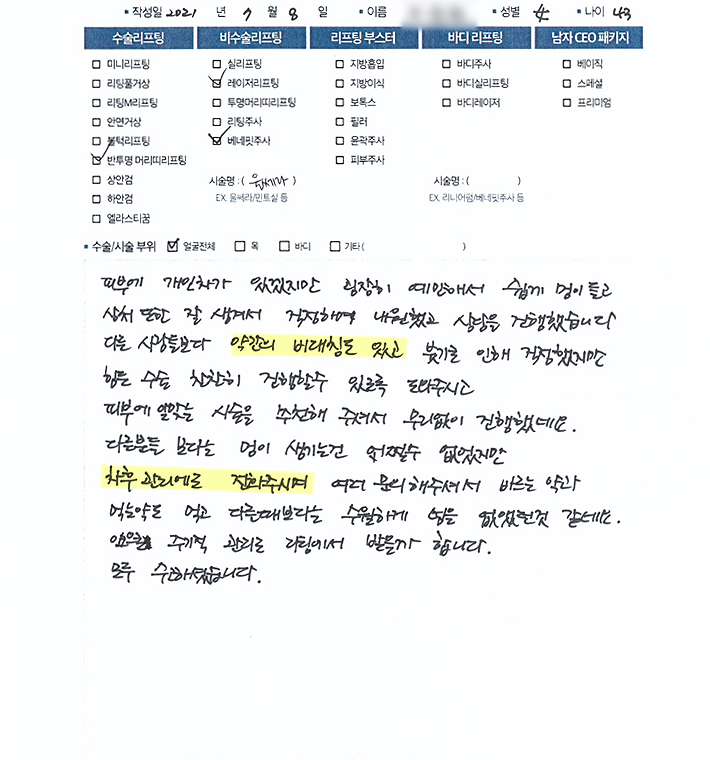 ▪ 작성일 2021 년 7 월 8 일 ▪ 이름 ▪ 성별 女 ▪ 나이 43
수술리프팅 비수술리프팅 리프팅 부스터 바디 리프팅 남자 CEO 패키지
미니리프팅 실리프팅 지방흡입 바디주사 베이직
리팅풀거상 레이저리프팅 지방이식 바디실리프팅 스페셜
리팅M리프팅 투명머리띠리프팅 보톡스 바디레이저 프리미엄
안면거상 리팅주사 필러
불턱리프팅 베네핏주사 윤곽주사
반투명 머리띠리프팅 피부주사
상안검 시술명 : ( 울쎄라 ) 시술명 : ( )
하안검 EX. 울쎄라/민트실 등 EX. 리니어펌/베네핏주사 등
엘라스티꿈
▪ 수술/시술 부위 얼굴전체 목 바디 기타 ( )
피부에 개인차가 있겠지만 굉장히 예민해서 쉽게 멍이 들고
상처 또한 잘 생겨서 걱정하며 내원했고 상담을 진행했습니다
다른 사람들보다 약간의 버대침도 있고 붓기로 인해 걱정했지만
힘든 수술 찬찬히 진행할수 있도록 도와주시고
피부에 알맞는 시술을 추천해 주셔서 무리없이 진행했네요.
다른분들 보다는 멍이 생기는건 어쩔수 없었지만
차후 관리에도 전화주시며 여러 문의해주셔서 바르는 약과
먹는약도 먹고 다른때보다는 수월하게 멍을 없앴던것 같네요.
주기적 관리로 리팅에서 받을까 합니다.
모두 수고하셨습니다.